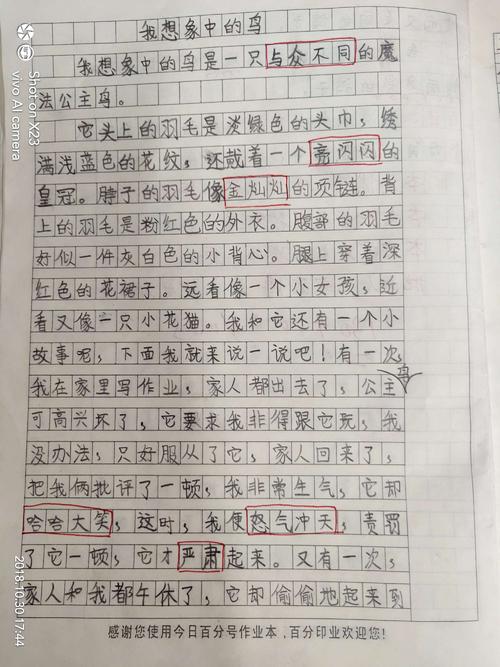 我想象中的鸟
我想象中的鸟是一只与众不同的魔
法公主鸟。
它头上的羽毛是淡绿色的头巾，绣
满浅蓝色的花纹，还戴着一个亮闪闪的
皇冠。脖子的羽毛像金灿灿的项链。背
上的羽毛是粉红色的外衣。腹部的羽毛
好似一件灰白色的小背心。腿上穿着深
红色的花裙子。远看像一个小女孩，近
看又像一只小花猫。我和它还有一个小
故事呢，下面我就来说一说吧！有一次，
我在家里写作业，家人都出去了，公主鸟
可高兴坏了，它要求我非得跟它玩，我
没办法，只好服从了它，家人回来了，
把我俩批评了一顿，我非常生气，它却
哈哈大笑，这时，我便怒气冲天，责罚
了它一顿，它才严肃起来。又有一次，
家人和我都午休了，它却偷偷地起来到
感谢您使用今日百分号作业本，百分印业欢迎您！
Shot on X23
vivo AI camera
2018-10-30 17:44